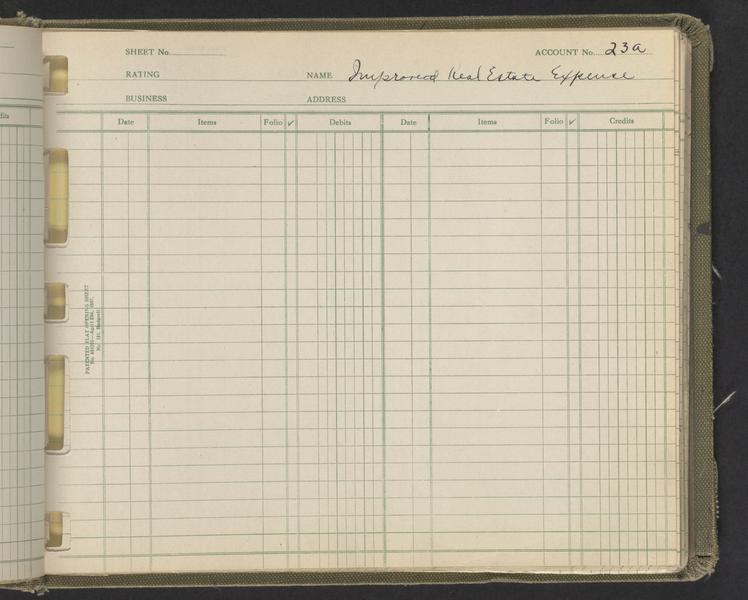 dits
SHEET No.
ACCOUNT No. 23a
RATING
NAME Improved Real Estate Expense
BUSINESS
ADDRESS
Date Items Folio ✓ Debits Date Items Folio ✓ Credits
PATENTED FLAT OPENING SHEET